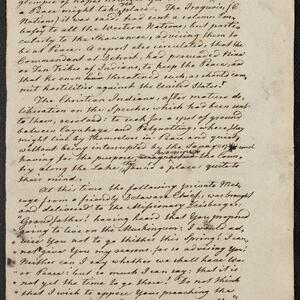 glimpse of hopes
a Peace might take place. The Iroquois (6
Nations) it was said, had sent a solemn Em-
bassy to all the Western Nations, but parti-
cularly to the Shawanose, advising them to
be at Peace. A report also circulated, that the
Commandant at Detroit, had persuaded Nine
or Ten Tribes of Indians, to keep the Peace, and
that he even had threatened such, as should com-
mit hostilities against the United States.
The Christian Indians, after mature de-
liberation on the Speeches which had been sent
to them, resolved: to seek for a spot of ground
between Cayahaga and Pettquotting, where they
might live by themselves in Peace and quiet,
without being interrupted by the Savages, and
having for this purpose, examined the coun-
try along the Lake, found a place quite to
their mind.
At this time the following private Mes-
sage from a friendly Delaware Chief, was brought
and delivered to the Missionary Zeisberger:
Grandfather! having heard that You propose
going to live on the Muskingum: I would ad-
vise You not to go thither this Spring: I can-
not give You my reason, for so advising You:
Neither can I say whether we shall have War
or Peace: but so much I can say: that it is
not yet the time to go there! Do not think
that I wish to oppose Your preaching the